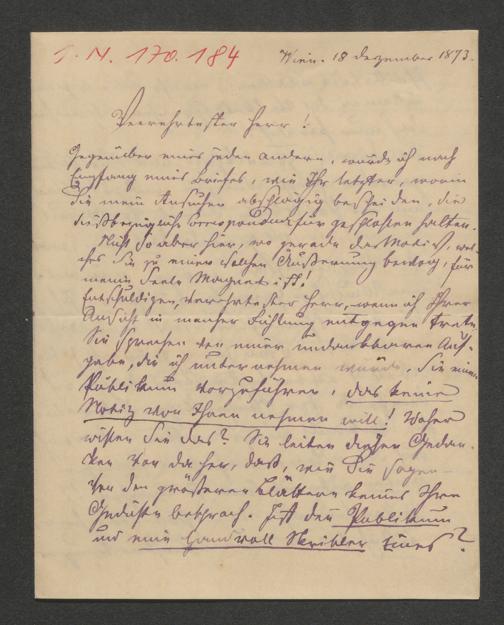 I. N. 170.184
Wien. 18 Dezember 1873.
Verehrtester Herr!
Gegenüber eines jeden andern, würde ich nach
Empfang eines Briefes, wie Ihr letzter, worin
Sie mein Ansuchen abschlägig bescheiden, die
dießbezügliche Correspondenz für geschlossen halten.
Nicht so aber hier, wo gerade das Motiv, wel-
ches Sie zu einer solchen Äußerung bewog, für
meine Seele Magnet ist!
Entschuldigen, verehrtester Herr, wenn ich Ihrer
Ansicht in mancher Richtung entgegen trete.
Sie sprechen von einer undankbaren Auf-
gabe, die ich unternehmen würde, Sie einem
Publikum vorzuführen, das keine
Notiz von Ihnen nehmen will! Woher
wissen Sie das? Sie leiten diesen Gedan-
ken von daher, daß, wie Sie sagen
von den größeren Blättern keines Ihrer
Gedichte besprach. Ist denn Publikum
und eine Handvoll Skribler Eines?